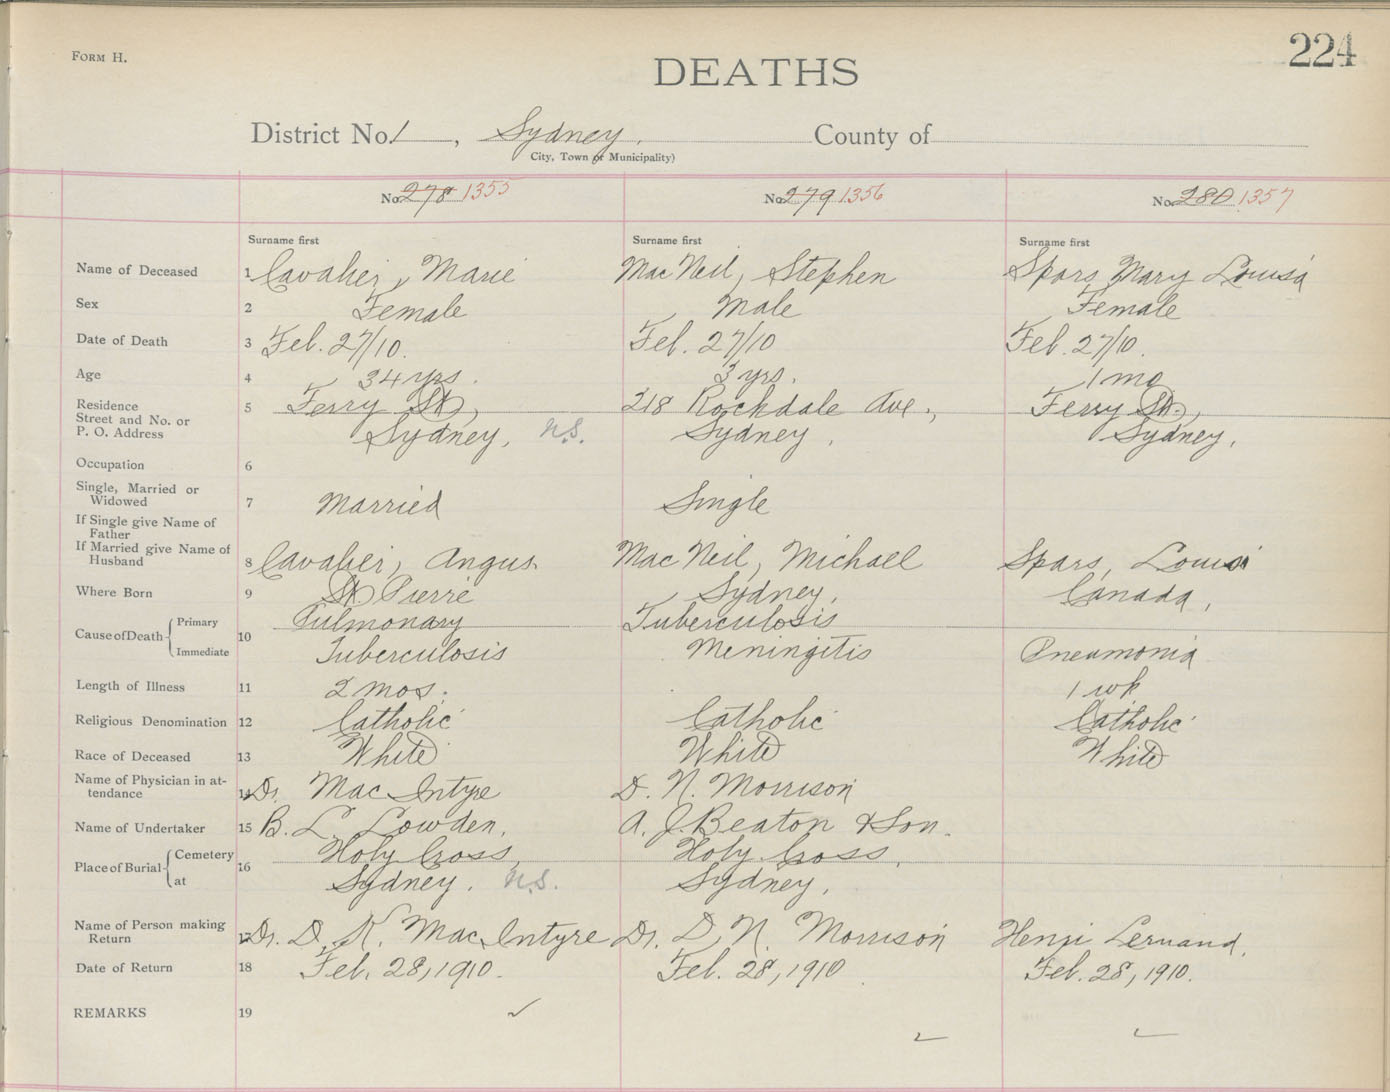 Form H.
224
DEATHS
District No. 1, Sydney, County of
City, Town or Municipality)
No. 278 1355 No. 279 1356 No. 280 1357
Surname first Surname first Surname first
Name of Deceased 1 Cavalier, Marie MacNeil, Stephen Spars, Mary Louisa
Sex 2 Female Male Female
Date of Death 3 Feb. 27/10. Feb. 27/10 Feb. 27/10.
Age 4 34 yrs. 3 yrs. 1 mo
Residence 5 Ferry St, 218 Rockdale Ave., Ferry St.,
Street and No. or
P. O. Address Sydney, N.S. Sydney, Sydney,
Occupation 6
Single, Married or
Widowed 7 Married Single
If Single give Name of
Father
If Married give Name of
Husband 8 Cavalier, Angus. MacNeil, Michael Spars, Louis
Where Born 9 St Pierre Sydney, Canada,
Cause of Death 10 Primary Pulmonary Tuberculosis
Immediate Tuberculosis Meningitis Pneumonia
Length of Illness 11 2 mos. 1 wk
Religious Denomination 12 Catholic Catholic Catholic
Race of Deceased 13 White White White
Name of Physician in at-
tendance 14 Dr. MacIntyre D. N. Morrison
Name of Undertaker 15 B. L. Lowden, A. J. Beaton & Son.
Place of Burial 16 Cemetery Holy Cross, Holy Cross,
at Sydney. N.S. Sydney,
Name of Person making
Return 17 Dr. D. K. MacIntyre Dr. D. N. Morrison Henri
Date of Return 18 Feb. 28, 1910. Feb. 28, 1910 Feb. 28, 1910.
REMARKS 19